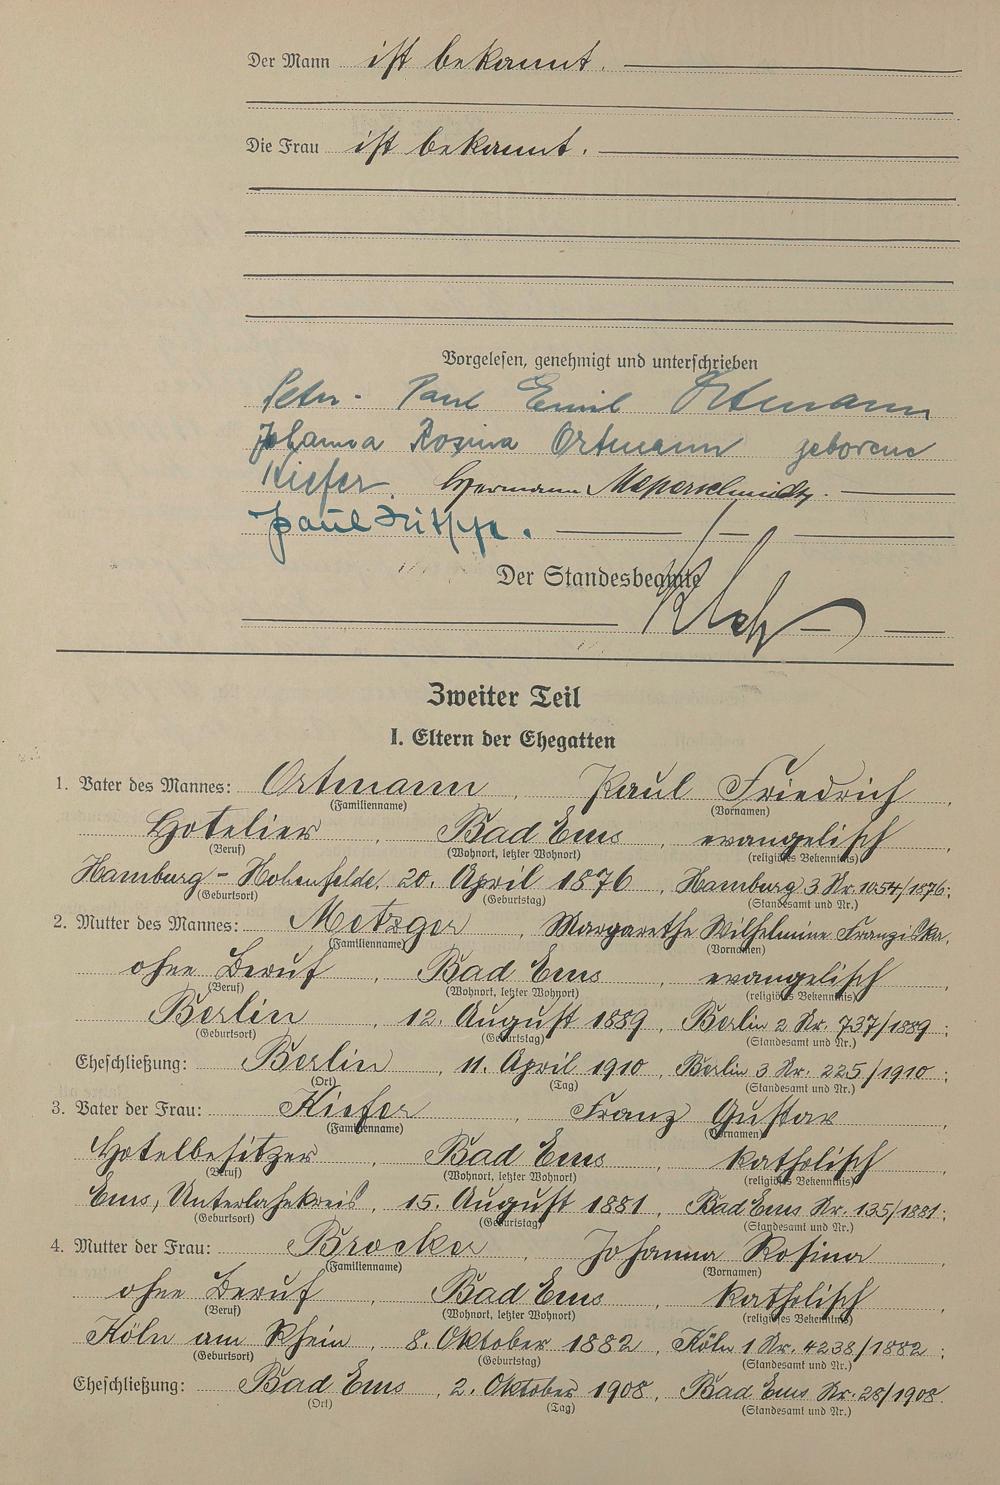 Der Mann ist bekannt.
Die Frau ist bekannt.
Vorgelesen, genehmigt und unterschrieben
Peter Paul Emil Ortmann
Johanna Rosina Ortmann geborene
Kiefer. Hermann
Paul
Der Standesbeamte
Zweiter Teil
I. Eltern der Ehegatten
1. Vater des Mannes: Ortmann, Paul Friedrich,
(Familienname) (Vornamen)
Hotelier, Bad Ems, evangelisch,
(Beruf) (Wohnort, letzter Wohnort) (religiöses Bekenntnis)
Hamburg-Hohenfelde, 20. April 1876, Hamburg 3 Nr. 1054/1876;
(Geburtsort) (Geburtstag) (Standesamt und Nr.)
2. Mutter des Mannes: Metzger, Margarethe Wilhelmine Franziska,
(Familienname) (Vornamen)
ohne Beruf, Bad Ems, evangelisch,
(Beruf) (Wohnort, letzter Wohnort) (religiöses Bekenntnis)
Berlin, 12. August 1889, Berlin 2 Nr. 737/1889;
(Geburtsort) (Geburtstag) (Standesamt und Nr.)
Eheschließung: Berlin, 11. April 1910, Berlin 3 Nr. 225/1910;
(Ort) (Tag) (Standesamt und Nr.)
3. Vater der Frau: Kiefer, Franz Gustav,
(Familienname) (Vornamen)
Hotelbesitzer, Bad Ems, katholisch,
(Beruf) (Wohnort, letzter Wohnort) (religiöses Bekenntnis)
Ems, Unterlahnkreis, 15. August 1881, Bad Ems Nr. 135/1881;
(Geburtsort) (Geburtstag) (Standesamt und Nr.)
4. Mutter der Frau: Brocker, Johanna Rosina,
(Familienname) (Vornamen)
ohne Beruf, Bad Ems, katholisch,
(Beruf) (Wohnort, letzter Wohnort) (religiöses Bekenntnis)
Köln am Rhein, 8. Oktober 1882, Köln 1 Nr. 4238/1882;
(Geburtsort) (Geburtstag) (Standesamt und Nr.)
Eheschließung: Bad Ems, 2. Oktober 1908, Bad Ems Nr. 28/1908.
(Ort) (Tag) (Standesamt und Nr.)